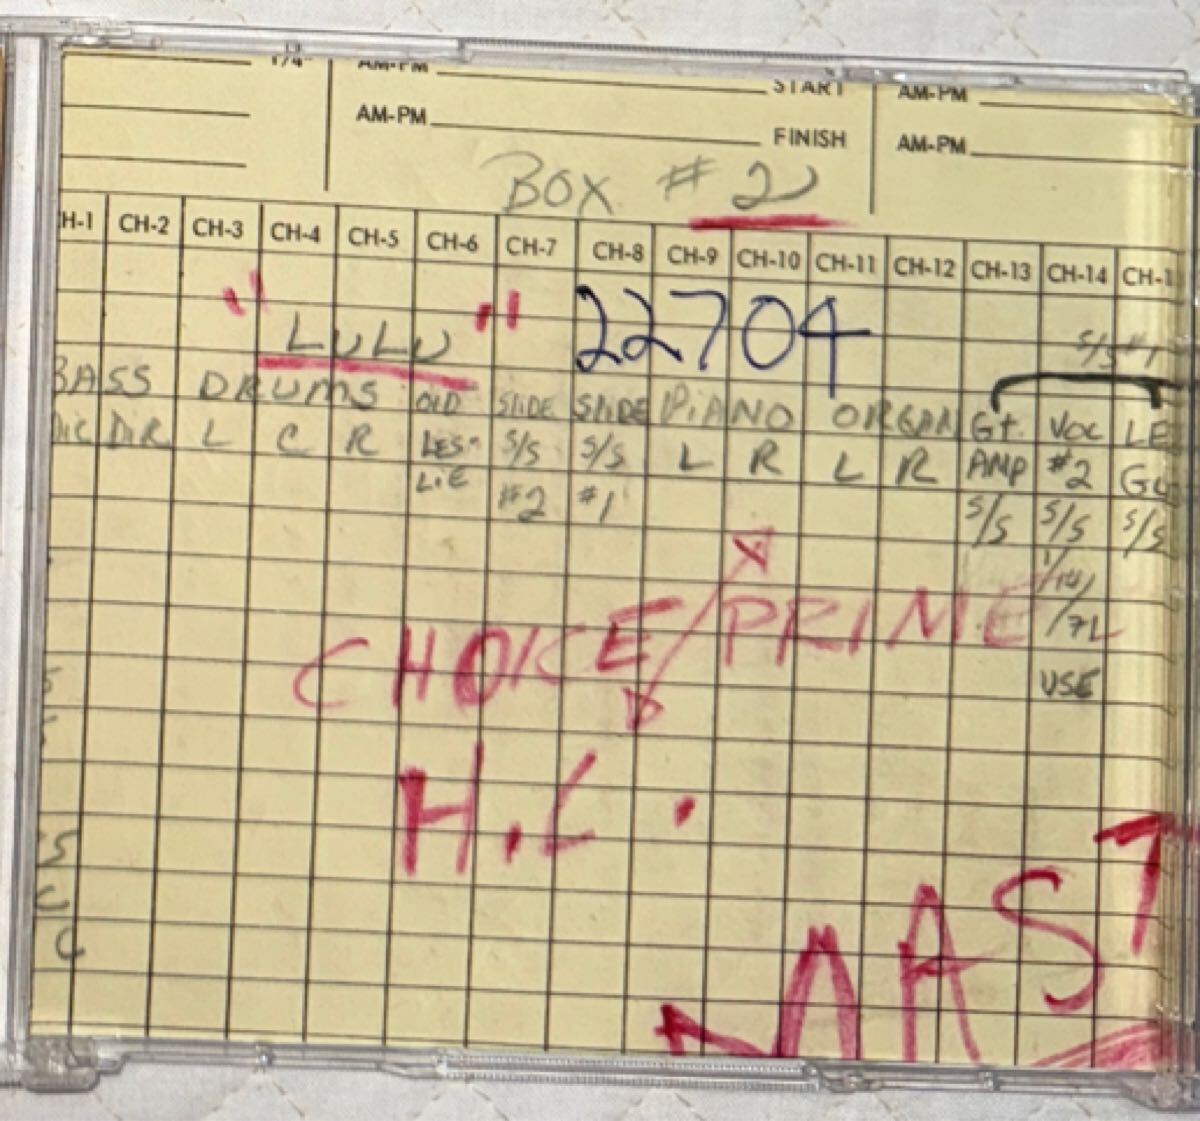 1/4" AM-PM START AM-PM
AM-PM FINISH AM-PM
BOX #2
H-1 CH-2 CH-3 CH-4 CH-5 CH-6 CH-7 CH-8 CH-9 CH-10 CH-11 CH-12 CH-13 CH-14 CH-1
"LULU" 22704 S/S #1
BASS DRUMS OLD SLIDE SLIDE PIANO ORGAN Gt. VOC LE
DIR L C R LES- S/S S/S L R L R AMP #2 GU
LIE #2 #1 S/S S/S S/S
1/14/71
USE
CHOICE/PRIME
H.L.
S
C
C
MAST